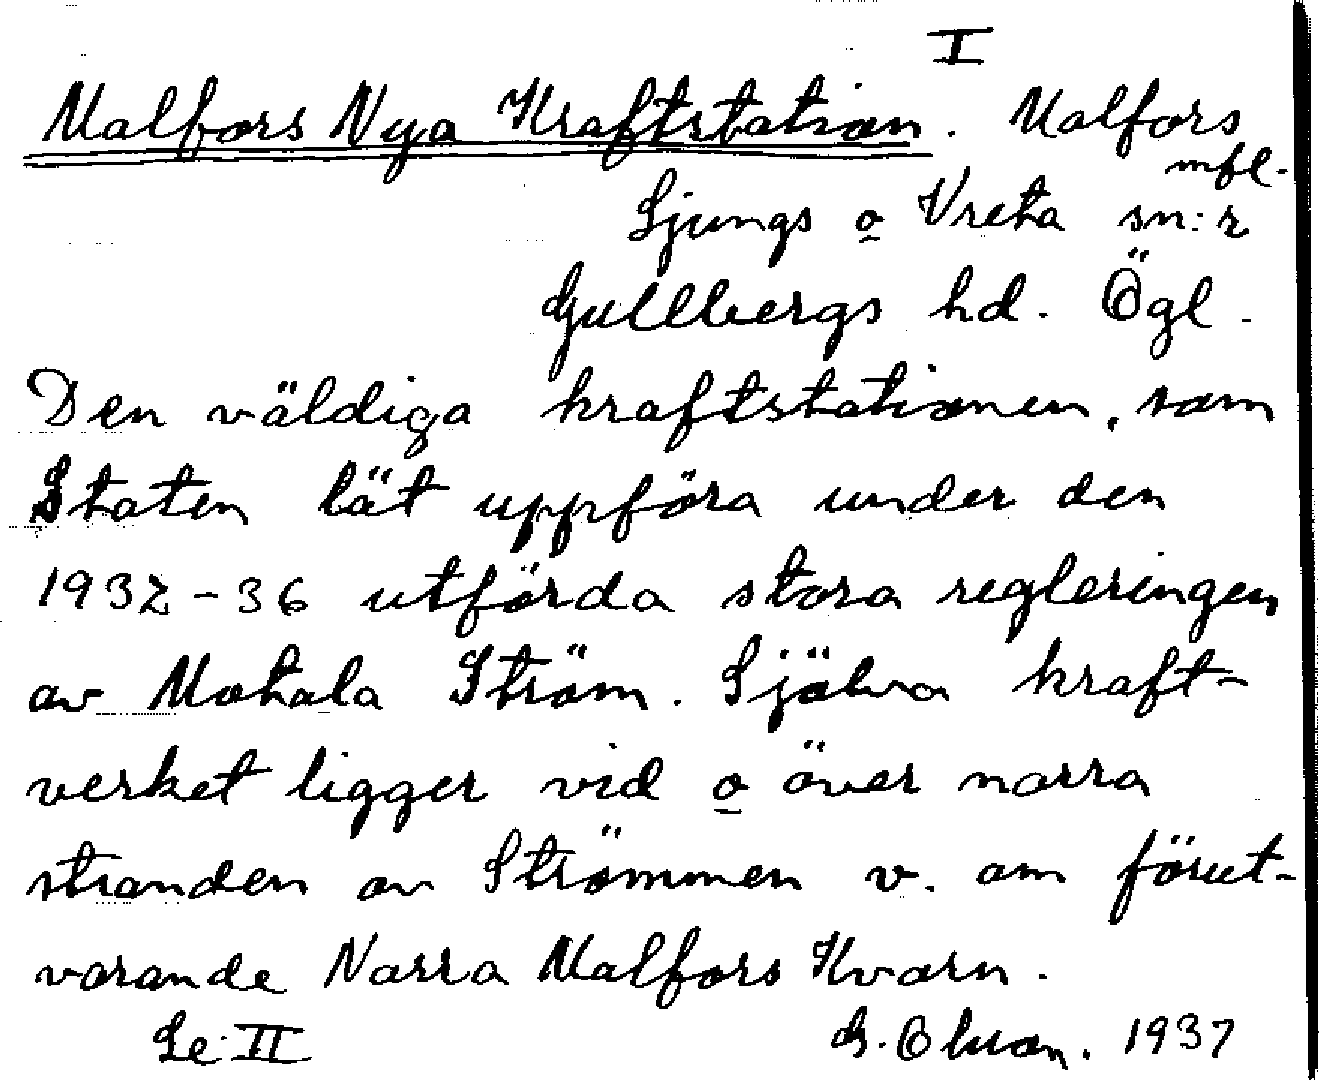 I
Malfors Nya Kraftstation. Malfors
mfl.
Ljungs o Vreta sn:r
Gullbergs hd. Ögl.
Den väldiga kraftstationen, som
Staten lät uppföra under den
1932-36 utförda stora regleringen
av Motala Ström. Själva kraft-
verket ligger vid o över norra
stranden av Strömmen v. om förut-
varande Norra Malfors Kvarn.
Se II
G. Olsson. 1937